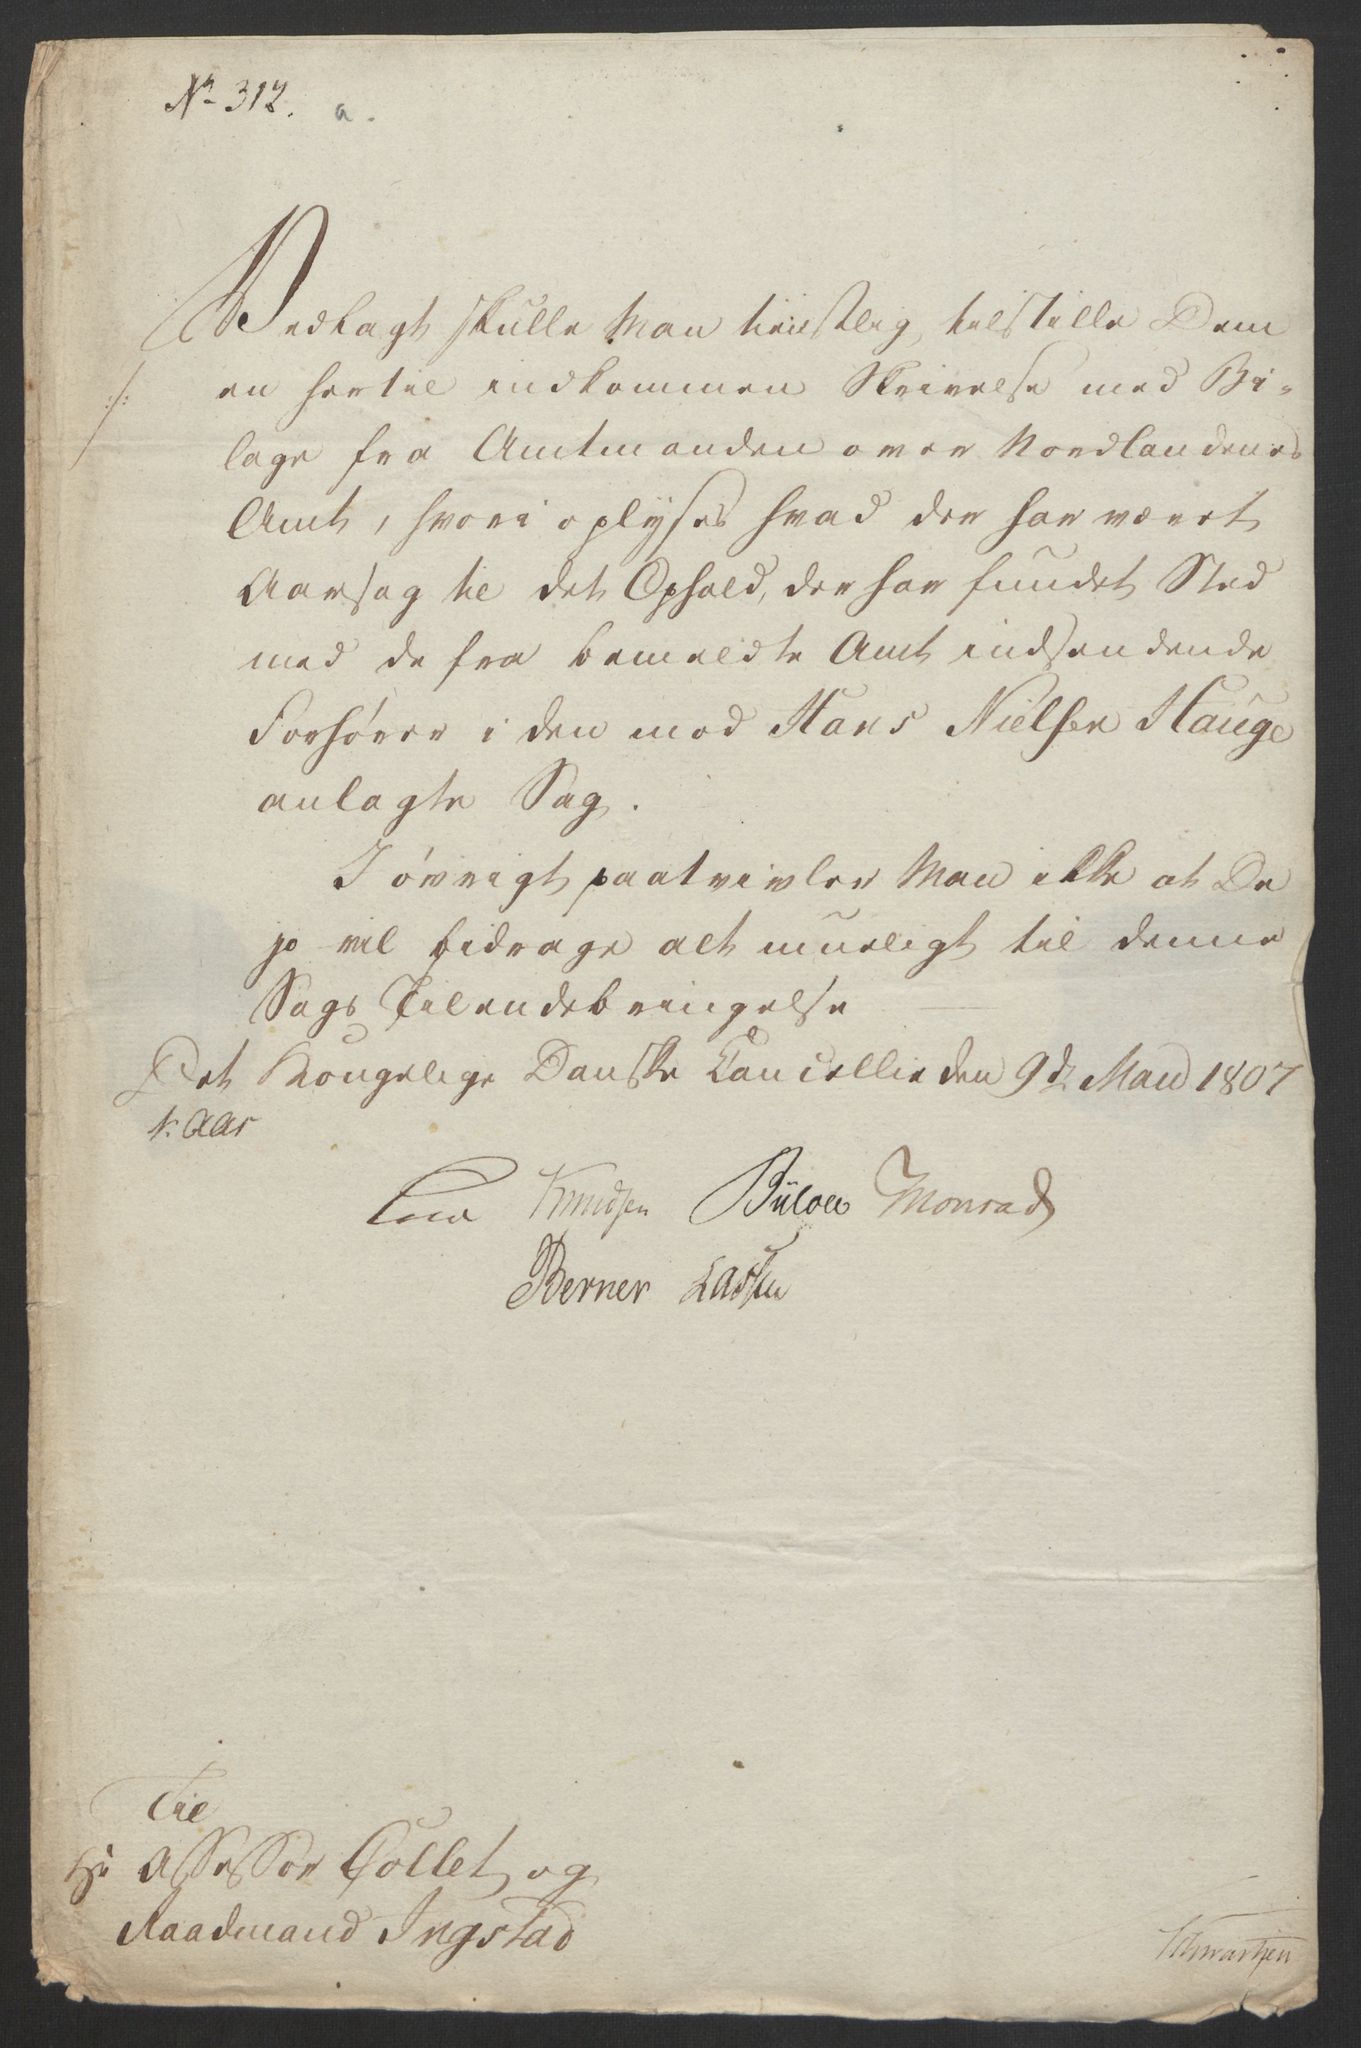 No 312. a.
Vedlagt skulle Man tienstlig tilstille Dem
en hertil indkommen Skrivelse med Bi-
lage fra Amtmanden over Nordlandenes
Amt, hvori oplyses hvad der har været
Aarsag til det Ophold, der har fundet Sted
med de fra bemeldte Amt indsendende
Forhører i den mod Hans Nielsen Hauge
anlagte Sag.
I øvrigt paatvivler Man ikke at De
jo vil bidrage alt mueligt til denne
Sags Tilendebringelse
Det Kongelige Danske Cancellie den 9de Maii 1807
Knudsen Bülow Monrad
Berner Lassen
Til
Hr Assessor Collet og
Raadmand Ingstad